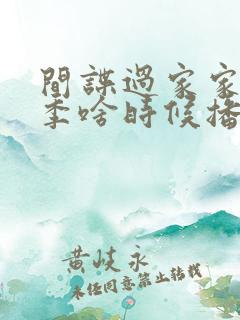 間諜過家家
季啥時候播
黄岐永
未经同意禁止转载